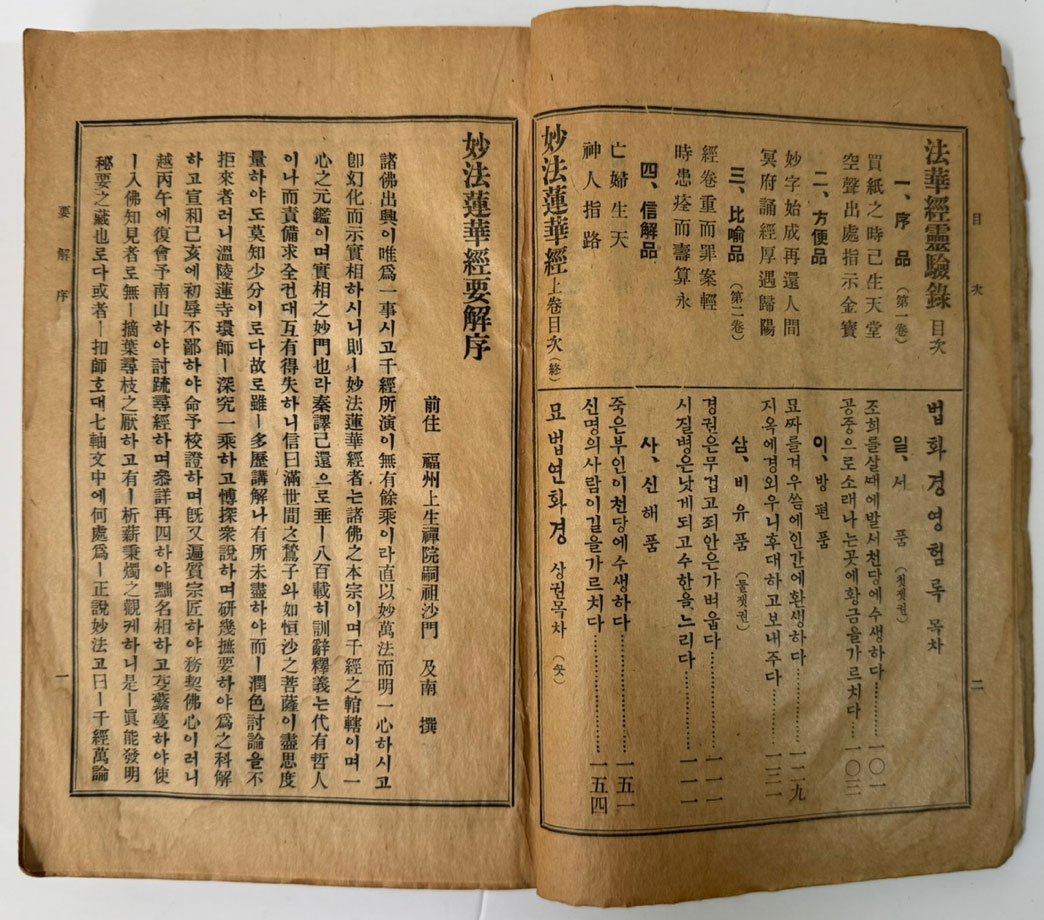 目次
法華經靈驗錄 目次
一、序品 (第一卷)
買紙之時己生天堂
空聲出處指示金寶
二、方便品
妙字始成再還人間
冥府誦經厚遇歸陽
三、比喻品 (第二卷)
經卷重而罪案輕
時患痊而壽算永
四、信解品
亡婦生天
神人指路
妙法蓮華經 上卷目次 (終)
법화경영험록 목차
일、서품 (첫잿권)
조희를살때에발서천당에수생하다………一〇一
공중으로소래나는곳에황금을가르치다…一〇三
이、방편품
묘짜를겨우씀에인간에환생하다…………一二九
지옥에경외우니후대하고보내주다………一三一
삼、비유품 (둘잿권)
경권은무겁고죄안은가벼웁다……………一一一
시질병은낫게되고수한을느리다…………一一一
사、신해품
죽은부인이천당에수생하다………………一五一
신명의사람이길을가르치다………………一五四
묘법연화경 상권목차 (끗)
二
妙法蓮華經要解序
前住 福州上生禪院嗣祖沙門 及南 撰
諸佛出興이唯爲一事시고千經所演이無有餘乘이라直以妙萬法而明一心하시고
卽幻化而示實相하시니則ㅣ妙法蓮華經者는諸佛之本宗이며千經之輨轄이며一
心之元鑑이며實相之妙門也라秦譯己還으로垂ㅣ八百載히訓辭釋義는代有哲人
이나而責備求全컨대互有得失하니信曰滿世間之鶖子와如恒沙之菩薩이盡思度
量하야도莫知少分이로다故로雖ㅣ多歷講解나有所未盡하야而ㅣ潤色討論을不
拒來者러니溫陵蓮寺環師ㅣ深究一乘하고博探衆說하며研幾撫要하야爲之科解
하고宣和己亥에初辱不鄙하야命予校證하며旣又遍質宗匠하야務契佛心이러니
越丙午에復會予南山하야討䟽尋經하며叅詳再四하야黜名相하고芟繁蔓하야使
ㅣ入佛知見者로無ㅣ摘葉尋枝之厭하고有ㅣ析薪秉燭之觀케하니是ㅣ眞能發明
秘要之藏也로다或者ㅣ扣師호대七軸文中에何處爲ㅣ正說妙法고曰ㅣ千經萬論
要解序
一